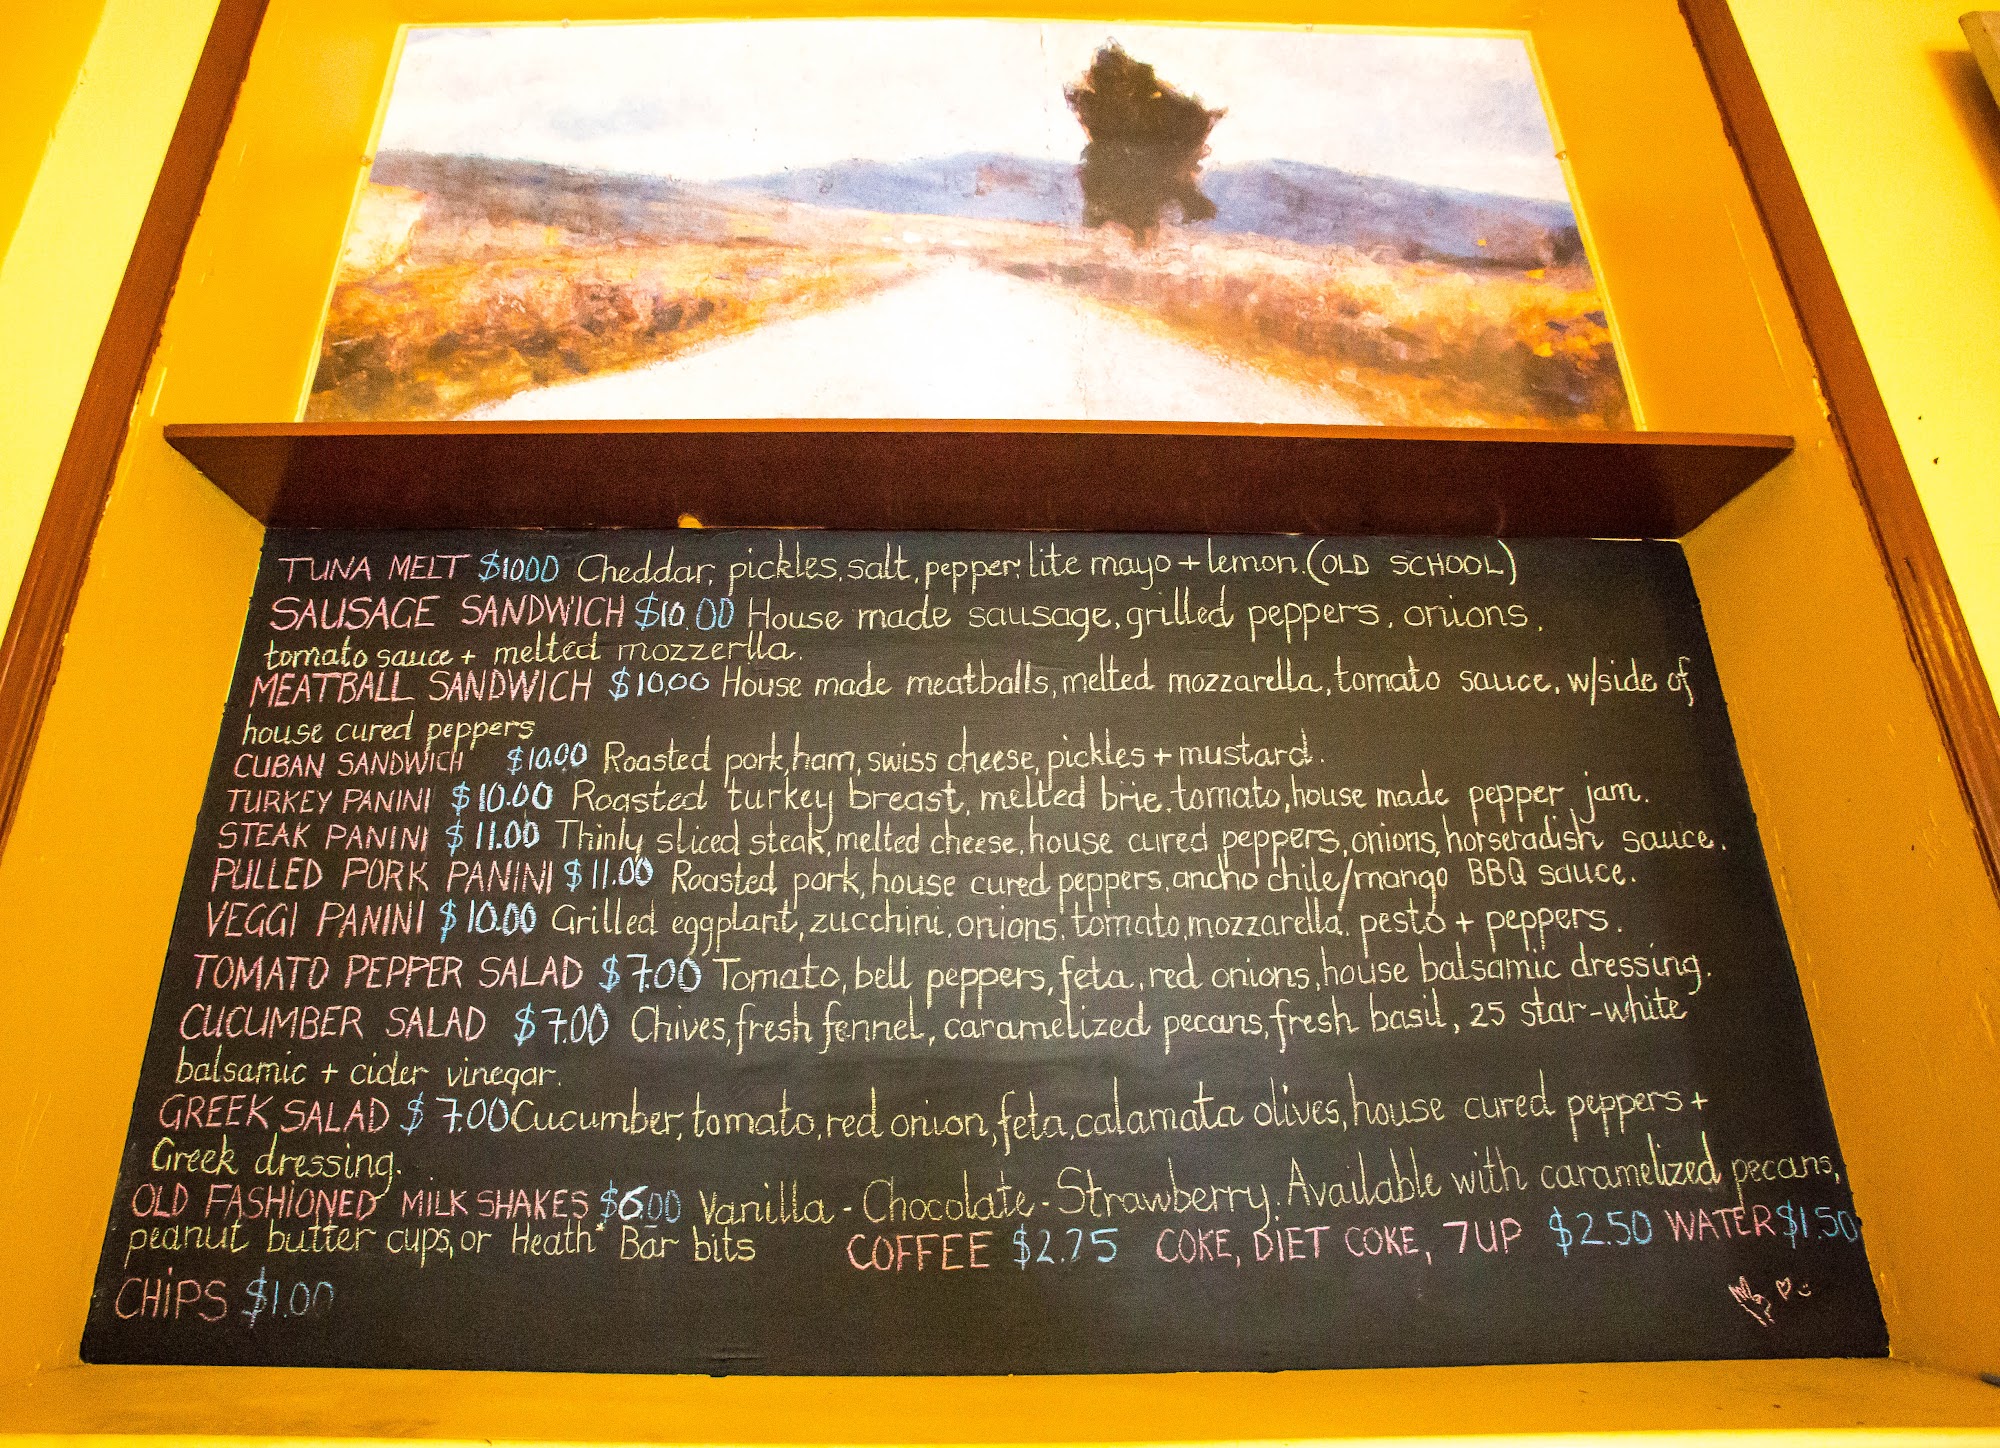 TUNA MELT $1000 Cheddar, pickles, salt, pepper, lite mayo + lemon. (OLD SCHOOL)
SAUSAGE SANDWICH $10.00 House made sausage, grilled peppers, onions,
tomato sauce + melted mozzerlla.
MEATBALL SANDWICH $10,00 House made meatballs, melted mozzarella, tomato sauce, w/side of
house cured peppers
CUBAN SANDWICH $10.00 Roasted pork, ham, swiss cheese, pickles + mustard.
TURKEY PANINI $10.00 Roasted turkey breast, melted brie, tomato, house made pepper jam.
STEAK PANINI $11.00 Thinly sliced steak, melted cheese, house cured peppers, onions, horseradish sauce.
PULLED PORK PANINI $11.00 Roasted pork, house cured peppers, ancho chile/mango BBQ sauce.
VEGGI PANINI $10.00 Grilled eggplant, zucchini, onions, tomato, mozzarella, pesto + peppers.
TOMATO PEPPER SALAD $7.00 Tomato, bell peppers, feta, red onions, house balsamic dressing.
CUCUMBER SALAD $7.00 Chives, fresh fennel, caramelized pecans, fresh basil, 25 star-white
balsamic + cider vinegar.
GREEK SALAD $7.00 Cucumber, tomato, red onion, feta, calamata olives, house cured peppers +
Greek dressing.
OLD FASHIONED MILK SHAKES $6.00 Vanilla - Chocolate - Strawberry. Available with caramelized pecans,
peanut butter cups, or Heath* Bar bits COFFEE $2.75 COKE, DIET COKE, 7UP $2.50 WATER $1.50
CHiPS $1.00